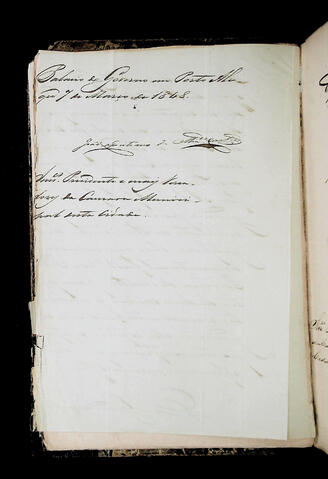 Palacio do Governo em Porto Ale-
gre 7 de Março de 1848.
Snr.es Presidente e mais Verea-
dores da Camara Munici-
pal desta Cidade.